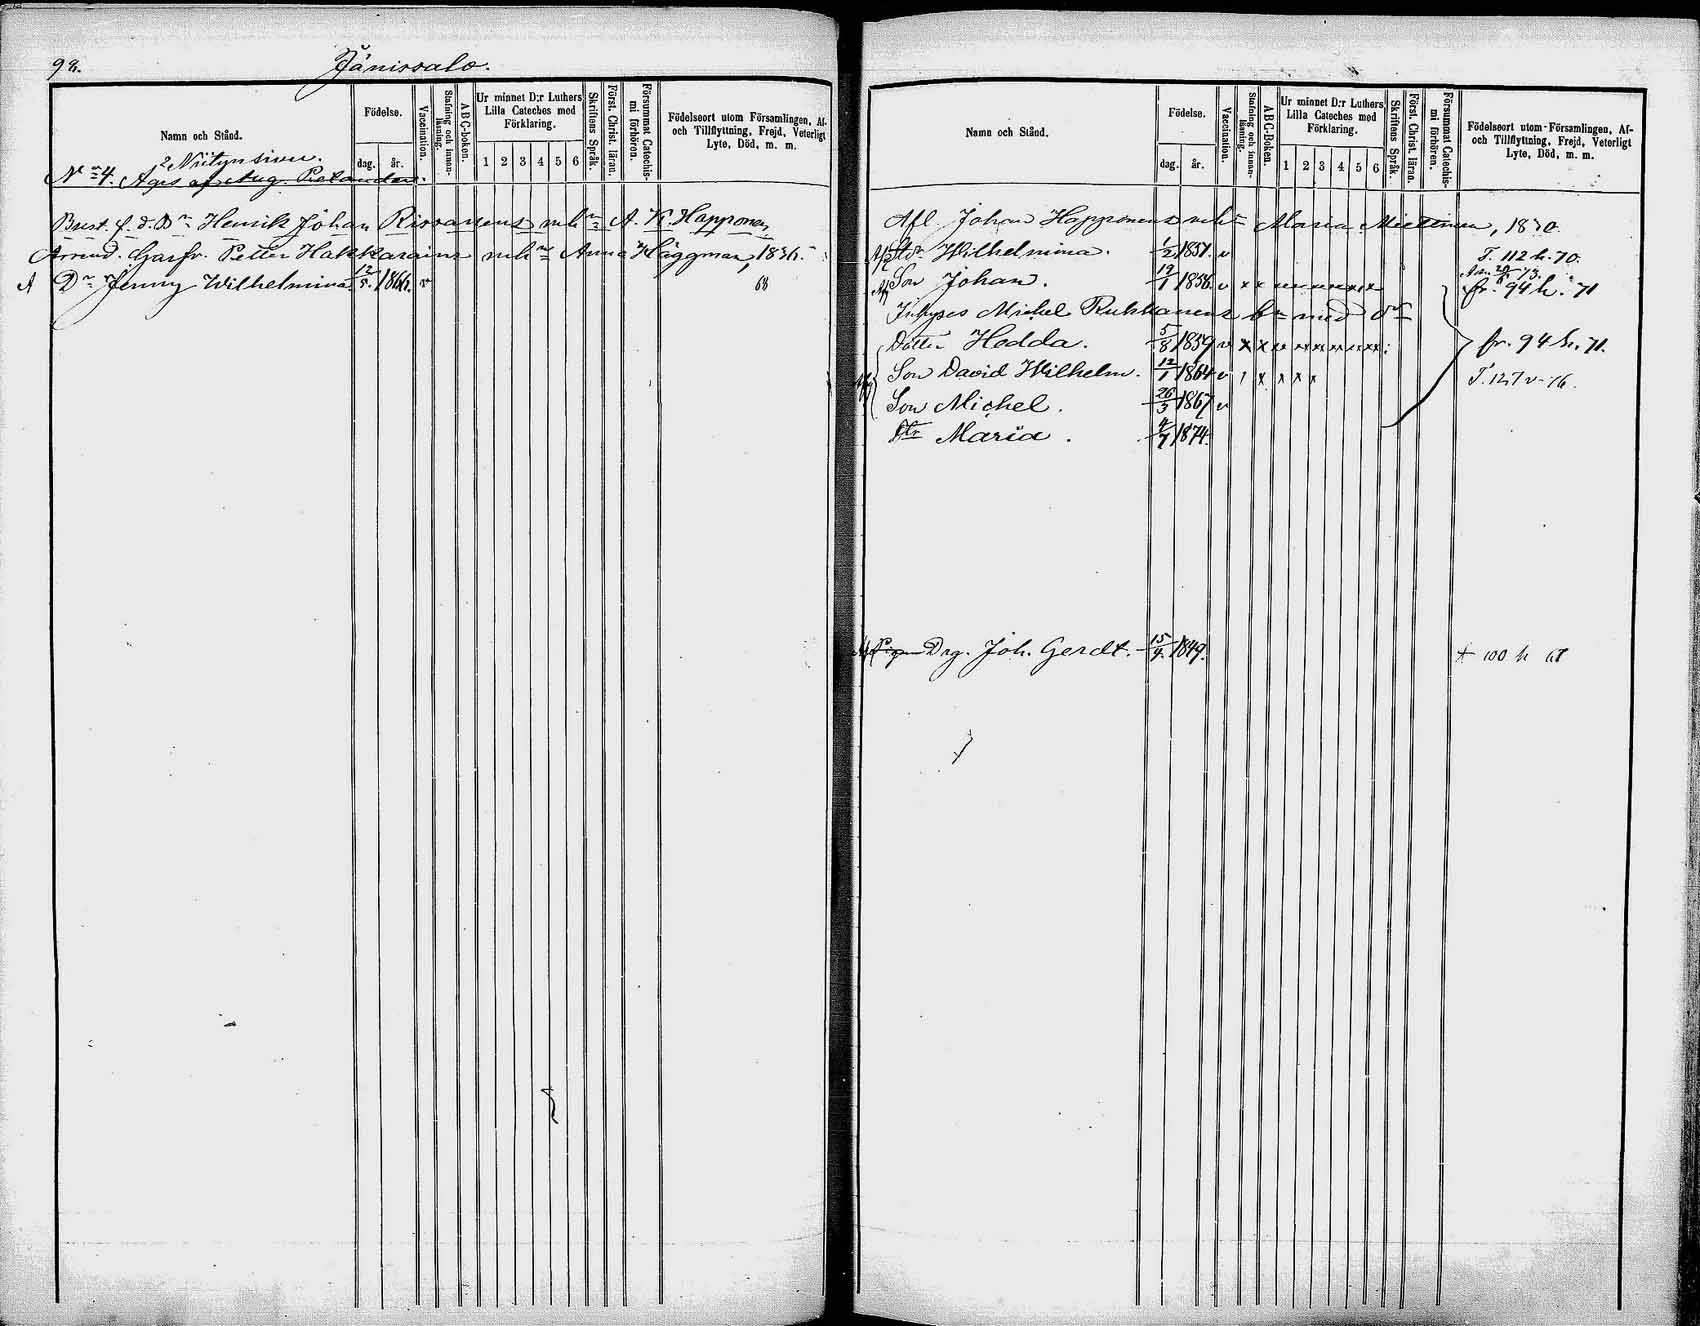 98. Jänissalo.
Namn och Stånd.
Födelse.
dag. år.
Vaccination.
Stafning och innan-läsning.
ABC-boken.
Ur minnet D:r Luthers
Lilla Cateches med
Förklaring.
1 2 3 4 5 6
Skriftens Språk.
Först. Christ. läran.
Försummat Catechis-
mi förhören.
Födelseort utom Församlingen, Af-
och Tillflyttning, Frejd, Veterligt
Lyte, Död, m. m.
2 Niitynsivu.
No 4. Äges af Aug. Pelander.
Henrik Johan Rissasens A. K. Happonen
Arrend. Garfv. Petter Hakkarains enka Anna Häggman, 1836.
A Dr Jenny Wilhelmina 12/5. 1866. v 68
Namn och Stånd.
Födelse.
dag. år.
Vaccination.
Stafning och innan-läsning.
ABC-boken.
Ur minnet D:r Luthers
Lilla Cateches med
Förklaring.
1 2 3 4 5 6
Skriftens Språk.
Först. Christ. läran.
Försummat Catechis-
mi förhören.
Födelseort utom Församlingen, Af-
och Tillflyttning, Frejd, Veterligt
Lyte, Död, m. m.
Afl. Johan Happonens enka Maria Miettinen, 1830.
Wilhelmina. 1/2 1851. v T. 112 h. 70.
Son Johan. 19/1 1856. v x x fr. 94 h. 71
Inhyses Michel Ruhkanens
Dotter Hedda. 5/8 1859 v x x fr. 94 h. 71.
Son David Wilhelm. 12/1 1864 v x x x x T. 127 v. 76.
Son Michel. 26/3 1867 v
Dtr Maria. 4/7 1874.
Drg. Joh. Gerdt. 15/9. 1849. 100 h 67